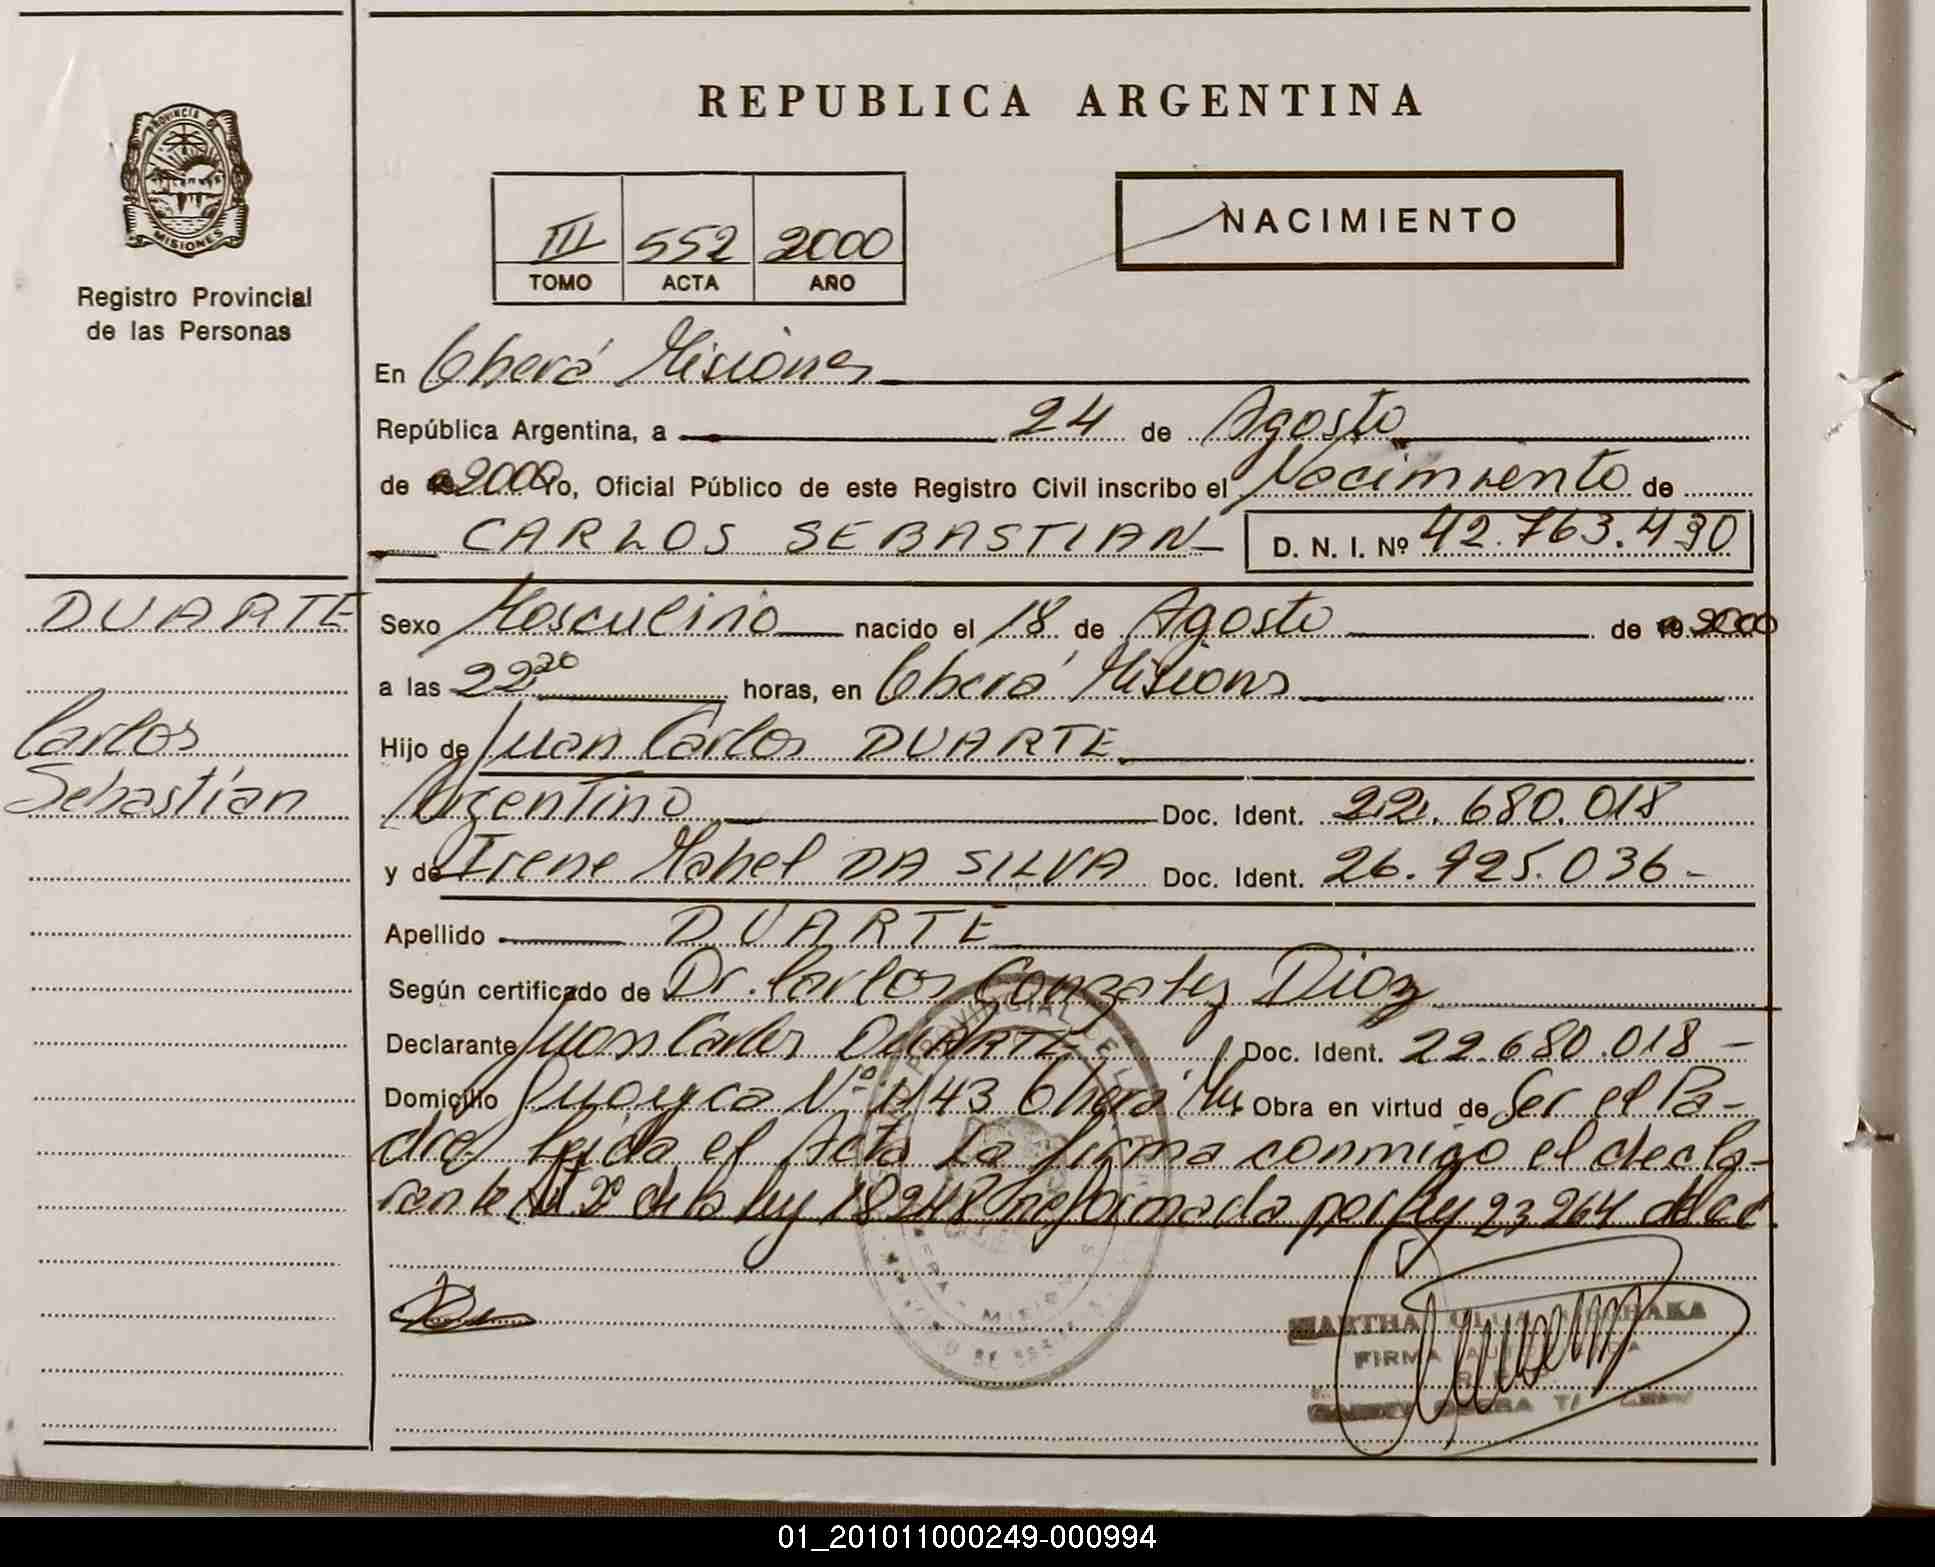 REPUBLICA ARGENTINA
PROVINCIA DE
MISIONES
Registro Provincial
de las Personas
III 552 2000
TOMO ACTA AÑO
NACIMIENTO
En Oberá Misiones
República Argentina, a 24 de Agosto
de 2000 Yo, Oficial Público de este Registro Civil inscribo el Nacimiento de
CARLOS SEBASTIAN D. N. I. Nº 42.763.490
DUARTE
Carlos
Sebastían
Sexo Masculino nacido el 18 de Agosto de 2000
a las 22,20 horas, en Oberá Misiones
Hijo de Juan Carlos DUARTE
Argentino Doc. Ident. 22.680.018
y de Irene Mabel DA SILVA Doc. Ident. 26.725.036-
Apellido DUARTE
Según certificado de Dr. Carlos Gonzalez Diaz
Declarante Juan Carlos DUARTE Doc. Ident. 22.680.018-
Domicilio Nº 1143 Oberá Mis Obra en virtud de Ser el Pa-
dre leida el Acta La firma conmigo el decla-
rante Art 2º de la ley 18248 reformada por ley 23264
FIRMA
01_201011000249-000994